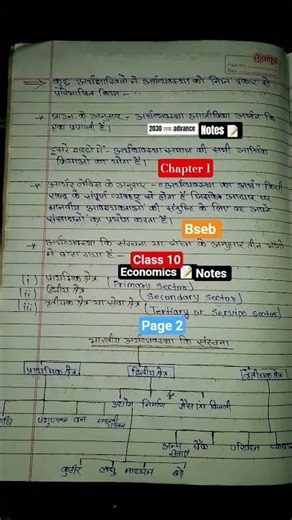 Page No.
Date
कुछ अर्थशास्त्रियों ने अर्थव्यवस्था को निम्न प्रकार से
परिभाषित किया -
ब्राउन के अनुसार - अर्थव्यवस्था आजीविका अर्जन कि
एक प्रणाली है।
2030 तक advance Notes 📝
दूसरे शब्दों में - अर्थव्यवस्था समाज की सभी आर्थिक
क्रियाओं का योग है।
Chapter 1
आर्थर लेविस के अनुसार - "अर्थव्यवस्था का अर्थ किसी
राष्ट्र के संपूर्ण व्यवहार से होता है जिसके आधार पर
मानवीय आवश्यकताओं की संतुष्टि के लिए वह अपने
संसाधनों का प्रयोग करता है।
Bseb
अर्थव्यवस्था कि संरचना या ढाँचा के अनुसार तीन भागों
में बाटा गया है -
Class 10
Economics 📝 Notes
(i) प्राथमिक क्षेत्र (Primary sector)
(ii) द्वितीय क्षेत्र (Secondary sector)
(iii) तृतीयक क्षेत्र या सेवा क्षेत्र (Tertiary or Service sector)
Page 2
भारतीय अर्थव्यवस्था कि संरचना
प्राथमिक क्षेत्र द्वितीय क्षेत्र तृतीयक क्षेत्र
पशुपालन वन मछली उद्योग निर्माण गैस बिजली
अन्य सेवाएं बैंक परिवहन व्यापार
कुटीर लघु माध्यम बड़े